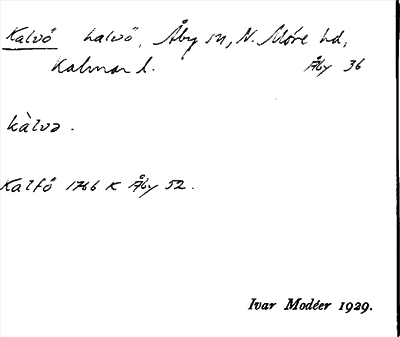 Kalvö halvö, Åby sn, N. Möre hd,
Kalmar l. Åby 36
kàlvə.
Kalfö 1766 K Åby 52.
Ivar Modéer 1929.